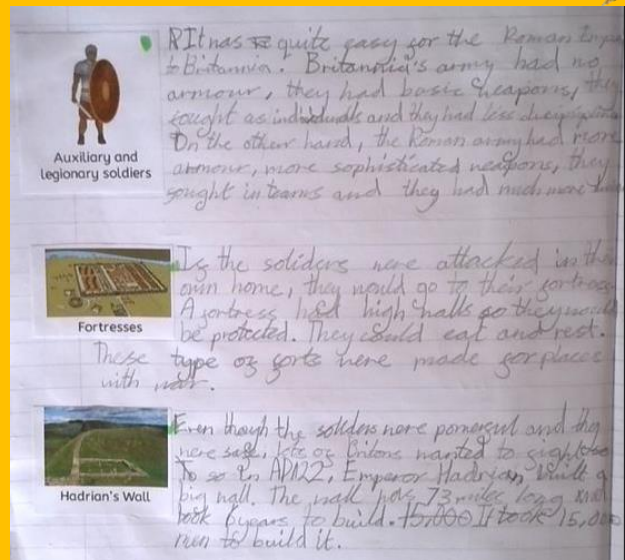 It was quite easy for the Roman Empi
to Britannia. Britannia's army had no
armour, they had basic weapons, they
fought as individuals and they had less
On the other hand, the Roman army had more
armour, more sophisticated weapons, they
fought in teams and they had much more
Auxiliary and
legionary soldiers
If the soliders were attacked in their
own home, they would go to their fortress
A fortress had high walls so they would
be protected. They could eat and rest.
These type of forts were made for places
with war.
Fortresses
Even though the soliders were powerful and they
were safe, lots of Britons wanted to fight too
To so in AD122, Emperor Hadrian, built a
big wall. The wall was 73 miles long and
took 6 years to build. 15,000 It took 15,000
men to build it.
Hadrian's Wall